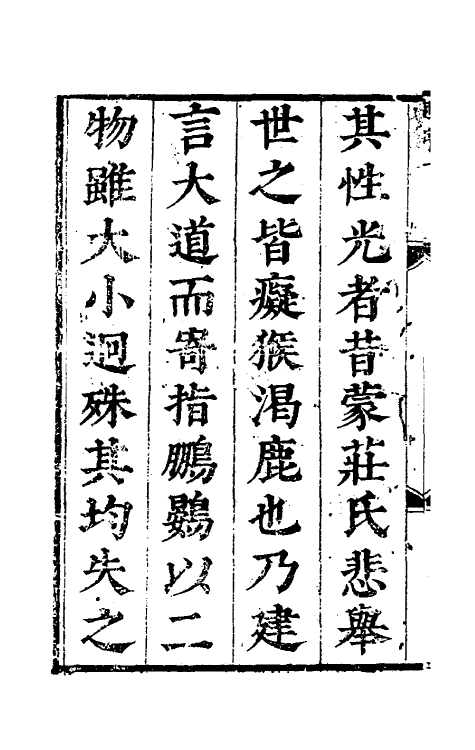 其性光者昔蒙莊氏悲舉
世之皆癡猴渴鹿也乃建
言大道而寄指鵬鷃以二
物雖大小迥殊其均失之